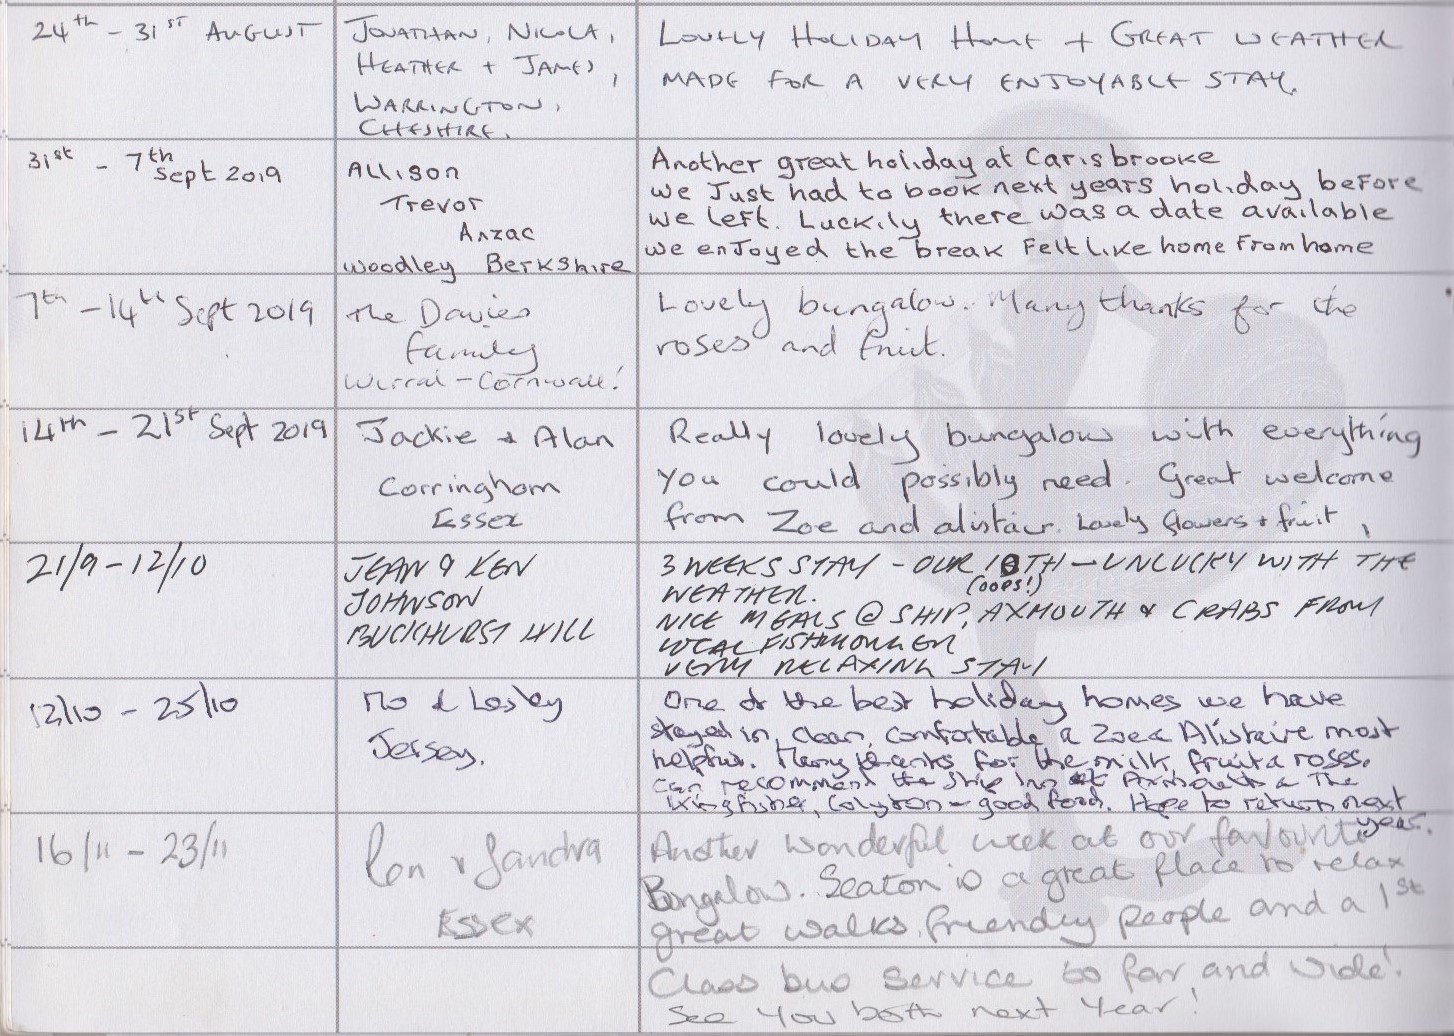 24th - 31st AUGUST
JONATHAN, NICOLA,
HEATHER + JAMES,
WARRINGTON,
CHESHIRE.
LOVELY HOLIDAY HOME + GREAT WEATHER
MADE FOR A VERY ENJOYABLE STAY.
31st - 7th
Sept 2019
Allison
Trevor
Anzac
Woodley Berkshire
Another great holiday at Carisbrooke
we Just had to book next years holiday before
we left. Luckily there was a date available
we enjoyed the break Felt Like home From home
7th - 14th Sept 2019
The Davies
family
Wirral - Cornwall!
Lovely bungalow. Many thanks for the
roses and fruit.
14th - 21st Sept 2019
Jackie & Alan
Corringham
Essex
Really lovely bungalow with everything
you could possibly need. Great welcome
from Zoe and alistair. Lovely flowers + fruit,
21/9 - 12/10
JEAN & KEN
JOHNSON
BUCKHURST HILL
3 WEEKS STAY - OUR 10TH - UNLUCKY WITH THE
(OOPS!)
WEATHER.
NICE MEALS @ SHIP, AXMOUTH & CRABS FROM
LOCAL FISHMONGER
VERY RELAXING STAY
12/10 - 25/10
Mo & Lesley
Jersey.
One of the best holiday homes we have
stayed in, clean, comfortable & Zoe & Alistaire most
helpful. Many thanks for the milk, fruit & roses.
can recommend the Ship Inn at Axmouth & The
Kingfisher, Colyton - good food. Hope to return next
year.
16/11 - 23/11
Ron & Sandra
Essex
Another wonderful week at our favourite
Bungalow. Seaton is a great place to relax
great walks, friendly people and a 1st
Class bus service to far and wide!
See you both next year!